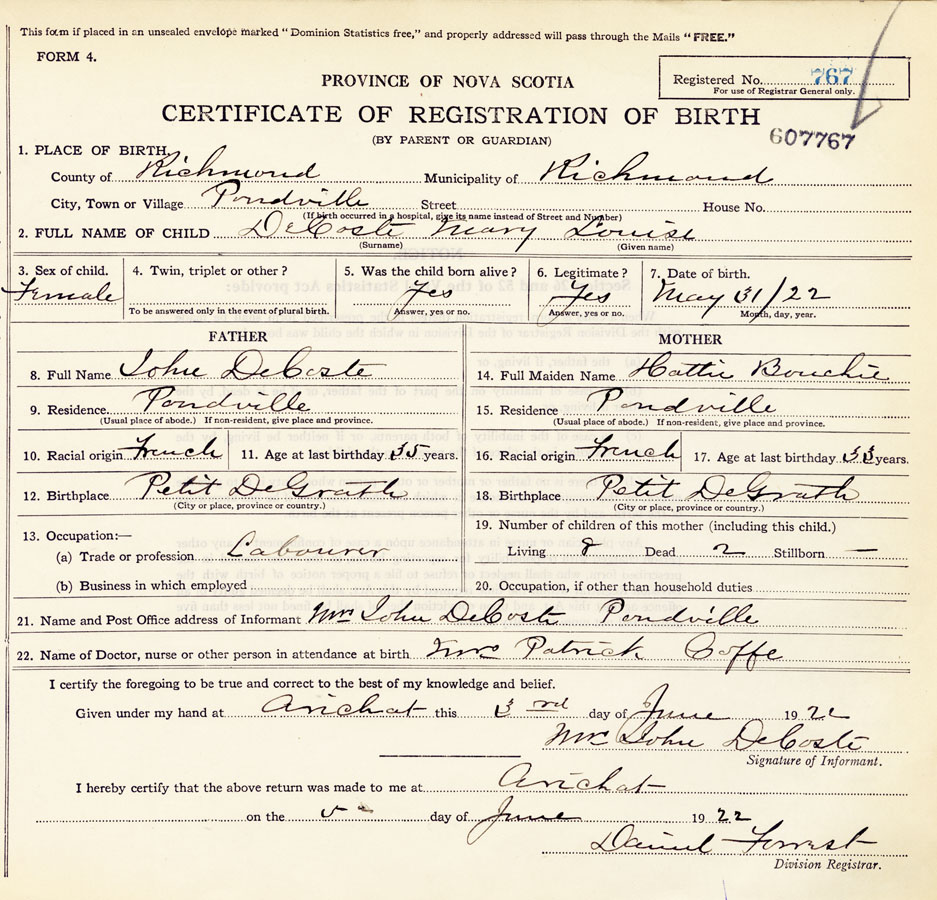 This form if placed in an unsealed envelope marked "Dominion Statistics free," and properly addressed will pass through the Mails "FREE."
FORM 4.
PROVINCE OF NOVA SCOTIA
Registered No. 767
For use of Registrar General only.
CERTIFICATE OF REGISTRATION OF BIRTH
607767
(BY PARENT OR GUARDIAN)
1. PLACE OF BIRTH
County of Richmond Municipality of Richmond
City, Town or Village Pondville Street House No.
(If birth occurred in a hospital, give its name instead of Street and Number)
2. FULL NAME OF CHILD DeCoste Mary Louise
(Surname) (Given name)
3. Sex of child. 4. Twin, triplet or other? 5. Was the child born alive? 6. Legitimate? 7. Date of birth.
Female Yes Yes May 31/22
To be answered only in the event of plural birth. Answer, yes or no. Answer, yes or no. Month, day, year.
FATHER MOTHER
8. Full Name John DeCoste 14. Full Maiden Name Hattie Bouchie
9. Residence Pondville 15. Residence Pondville
(Usual place of abode.) If non-resident, give place and province. (Usual place of abode.) If non-resident, give place and province.
10. Racial origin French 11. Age at last birthday 35 years. 16. Racial origin French 17. Age at last birthday 33 years.
12. Birthplace Petit DeGrath 18. Birthplace Petit DeGrath
(City or place, province or country.) (City or place, province or country.)
13. Occupation:— 19. Number of children of this mother (including this child.)
(a) Trade or profession Labourer Living 8 Dead 2 Stillborn —
(b) Business in which employed 20. Occupation, if other than household duties
21. Name and Post Office address of Informant Mr John DeCoste Pondville
22. Name of Doctor, nurse or other person in attendance at birth Mrs Patrick Coffe
I certify the foregoing to be true and correct to the best of my knowledge and belief.
Given under my hand at Arichat this 3rd day of June 1922
Mr John DeCoste
Signature of Informant.
I hereby certify that the above return was made to me at Arichat
on the 5 day of June 1922
Daniel Forrest
Division Registrar.